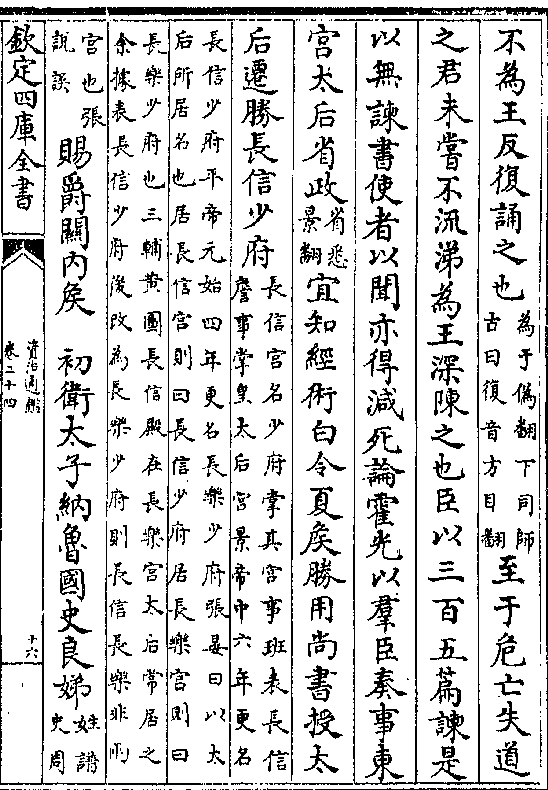 不為王反復誦之也為于偽翻下同師古曰復音方目翻至于危亡失道
之君未嘗不流涕為王深陳之也臣以三百五篇諫是
以無諫書使者以聞亦得減死論霍光以羣臣奏事東
宮太后省政省悉景翻宜知經術白令夏侯勝用尚書授太
后遷勝長信少府長信宮名少府掌其宮事班表長信詹事掌皇太后宮景帝中六年更名
長信少府平帝元始四年更名長樂少府張晏曰以太
后所居名也居長信宮則曰長信少府居長樂宮則曰
長樂少府也三輔黄圖長信殿在長樂宮太后常居之
余據表長信少府後改為長樂少府則長信長樂非兩
宮也張説誤賜爵關内侯 初衛太子納魯國史良娣姓譜史周
欽定四庫全書
資治通鑑
卷二十四
十六